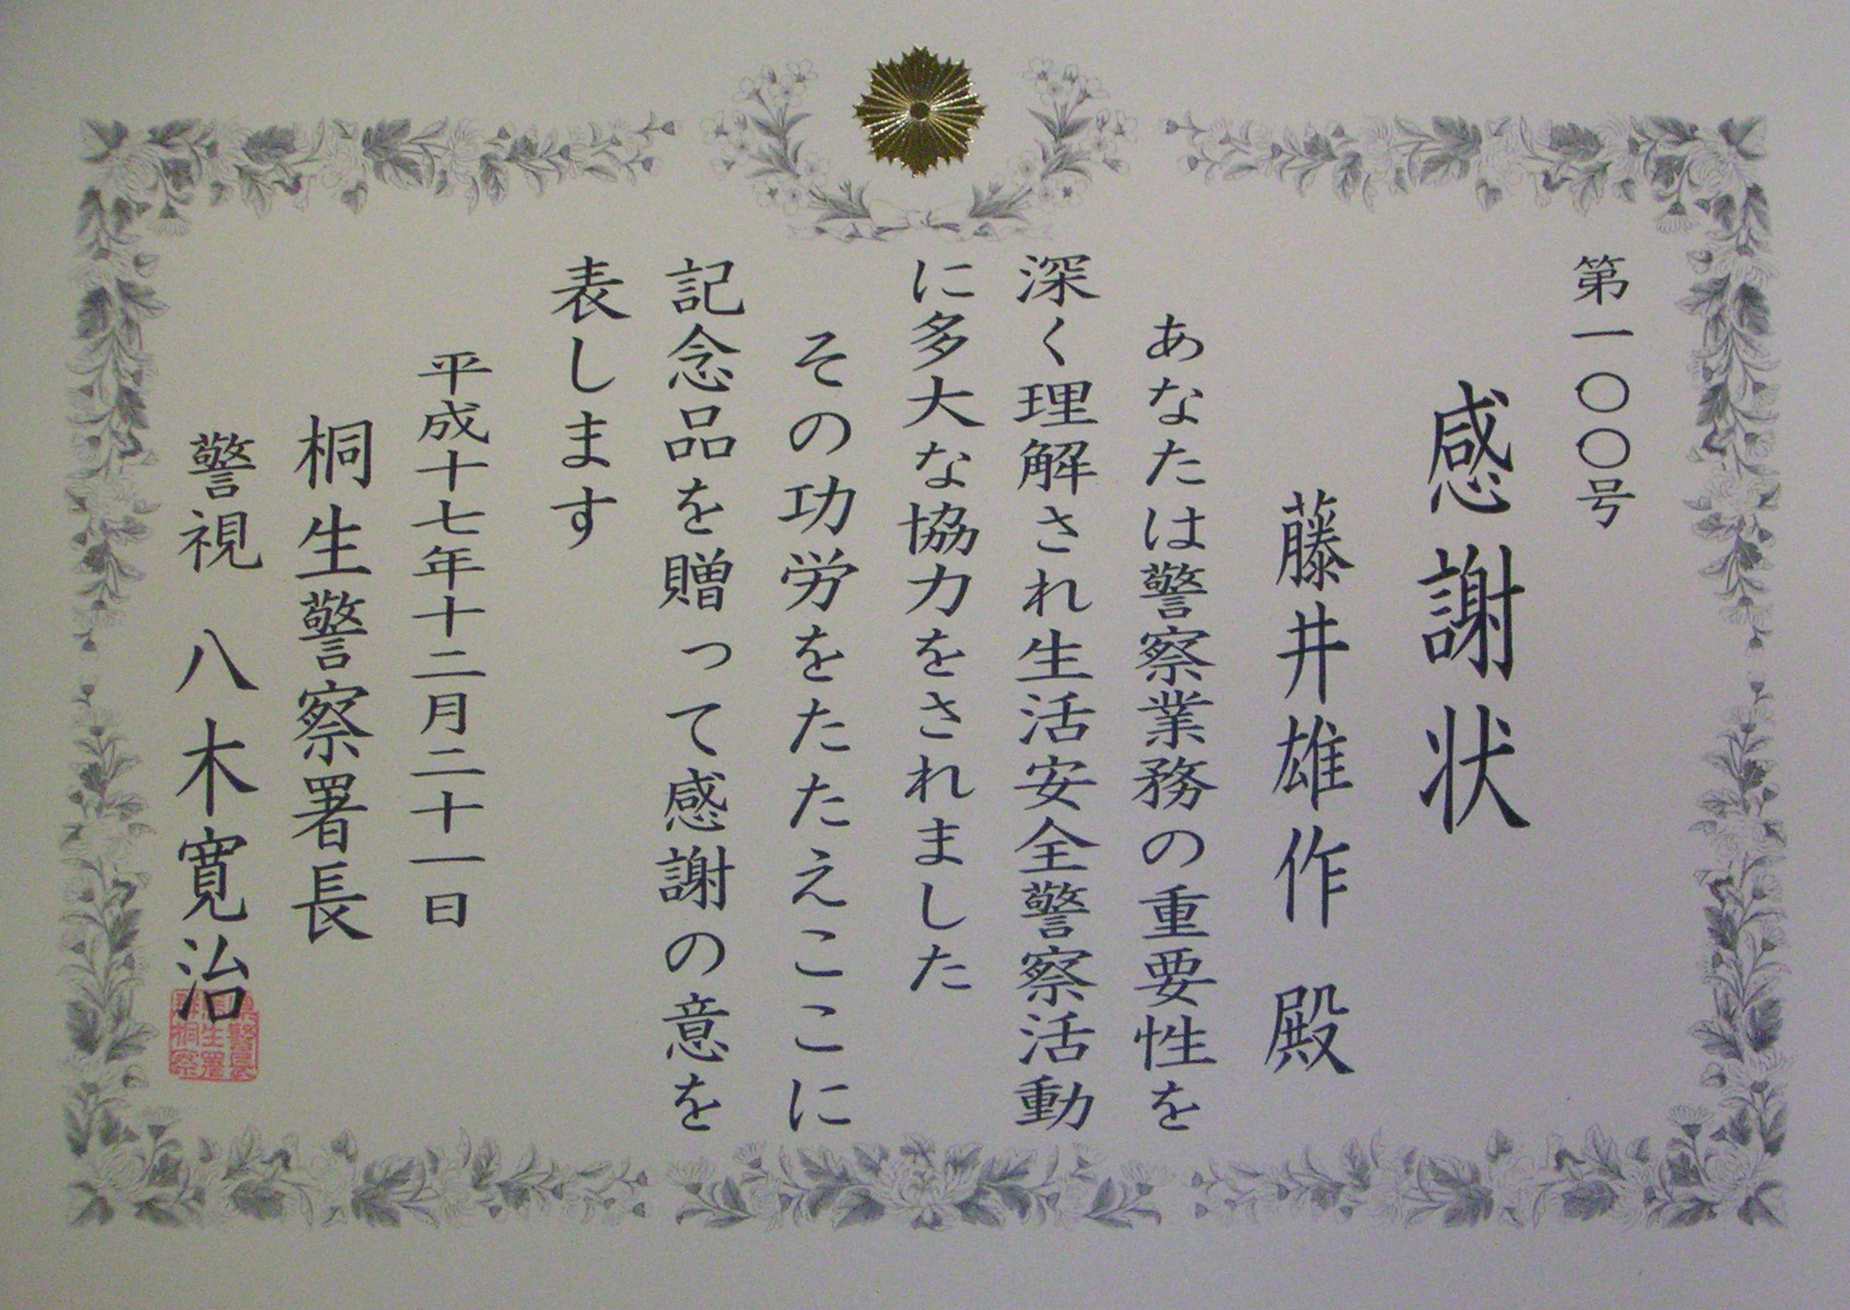 第一〇〇号
感謝状
藤井雄作 殿
あなたは警察業務の重要性を
深く理解され生活安全警察活動
に多大な協力をされました
その功労をたたえここに
記念品を贈って感謝の意を
表します
平成十七年十二月二十一日
桐生警察署長
警視 八木寛治